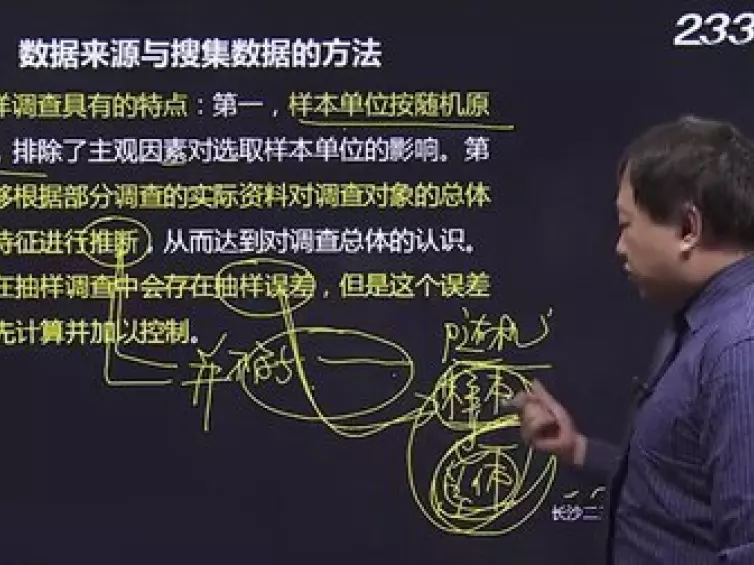 233
数据来源与搜集数据的方法
样调查具有的特点：第一，样本单位按随机原
，排除了主观因素对选取样本单位的影响。第
够根据部分调查的实际资料对调查对象的总体
特征进行推断，从而达到对调查总体的认识。
在抽样调查中会存在抽样误差，但是这个误差
先计算并加以控制。
随机
样本
总体
长沙二